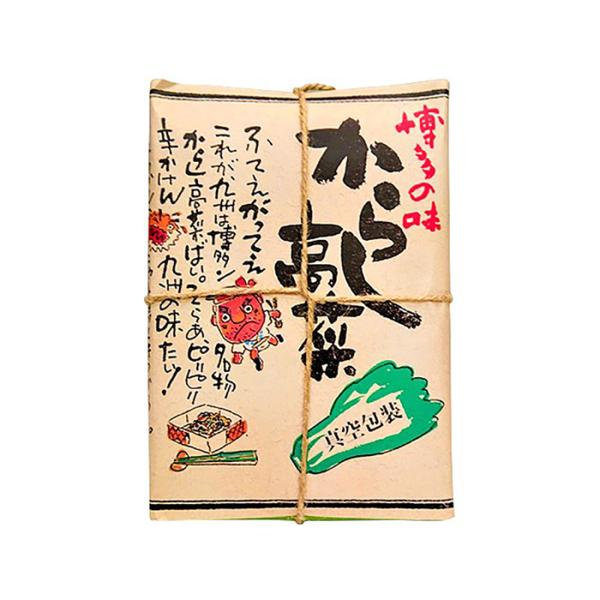 博多の味
からし高菜
ふてえがってえ
これが九州は博多ン名物
からし高菜ばい。こらあ、ピリピリ
辛かけんに九州の味たい!
真空包装